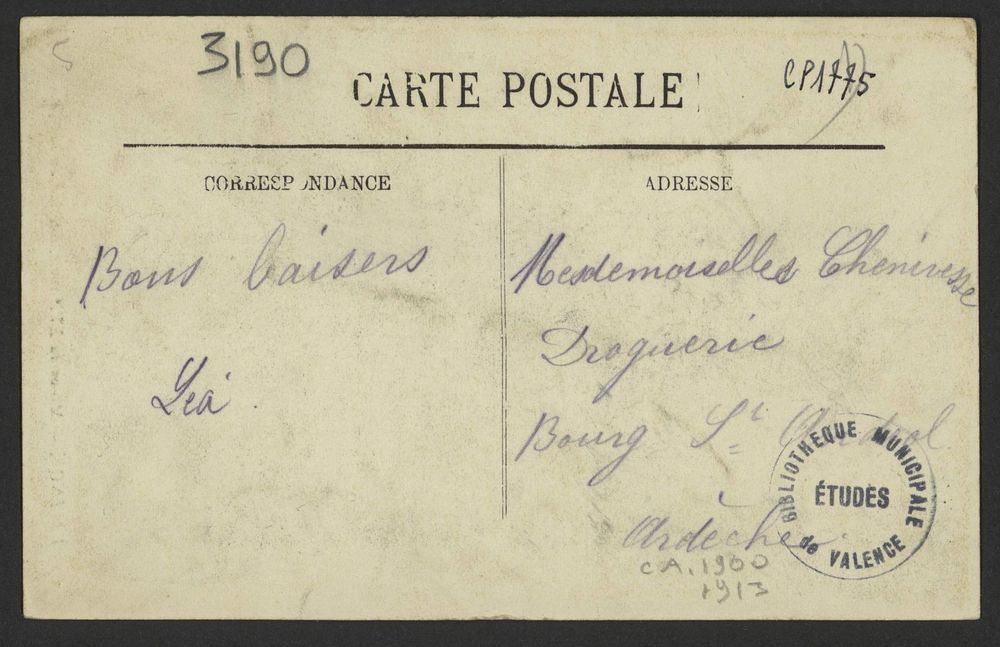 3190
CP1775
CARTE POSTALE
CORRESPONDANCE
ADRESSE
Bons baisers
Léa
Mesdemoiselles Cheninesse
Droguerie
Bourg St Andéol
Ardèche
BIBLIOTHEQUE MUNICIPALE
ÉTUDES
de VALENCE
CA. 1900
1913